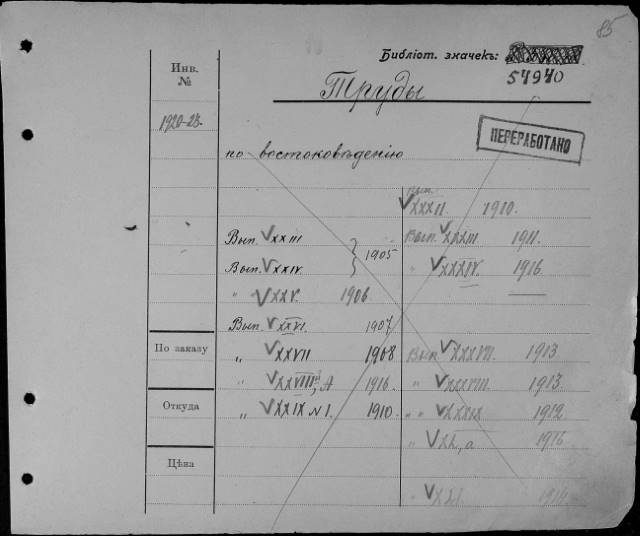 85
Библіот. значекъ:
54940
Инв.
№
Труды
1920-23.
ПЕРЕРАБОТАНО
по востоковѣденію
Вып.
XXXII. 1910.
Вып. XXIII
Вып. XXIV.
1905
" XXV. 1906
Вып. XXVI. 1907
" XXVII 1908
" XXVIII, A 1916.
" XXIX N 1. 1910.
Вып. XXXIII. 1911.
" XXXIV. 1916
Вып. XXXVII. 1913
" XXXVIII. 1913.
" " XXXIX 1912
" XL, a 1916
" XLI. 1914
По заказу
Откуда
Цѣна